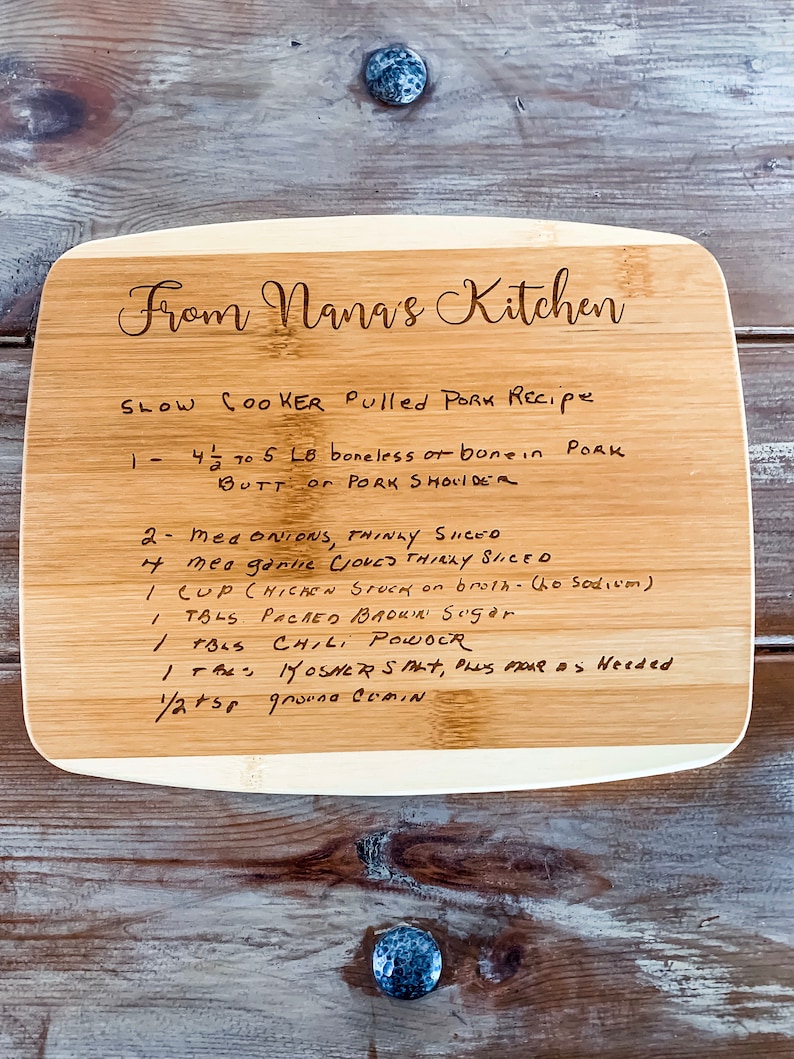 From Nana's Kitchen
SLOW COOKER Pulled PORK Recipe
1 - 4 1/2 TO 5 LB boneless or bone in PORK
BUTT or PORK SHOULDER
2 - Med ONIONS, THINLY SLICED
4 Med garlic Cloves THINLY SLICED
1 CUP CHICKEN STOCK or broth - (Lo Sodium)
1 TBLS PACKED BROWN Sugar
1 TBLS CHILI POWDER
1 TBLS KOSHER SALT, PLUS MORE as Needed
1/2 tsp ground CUMIN